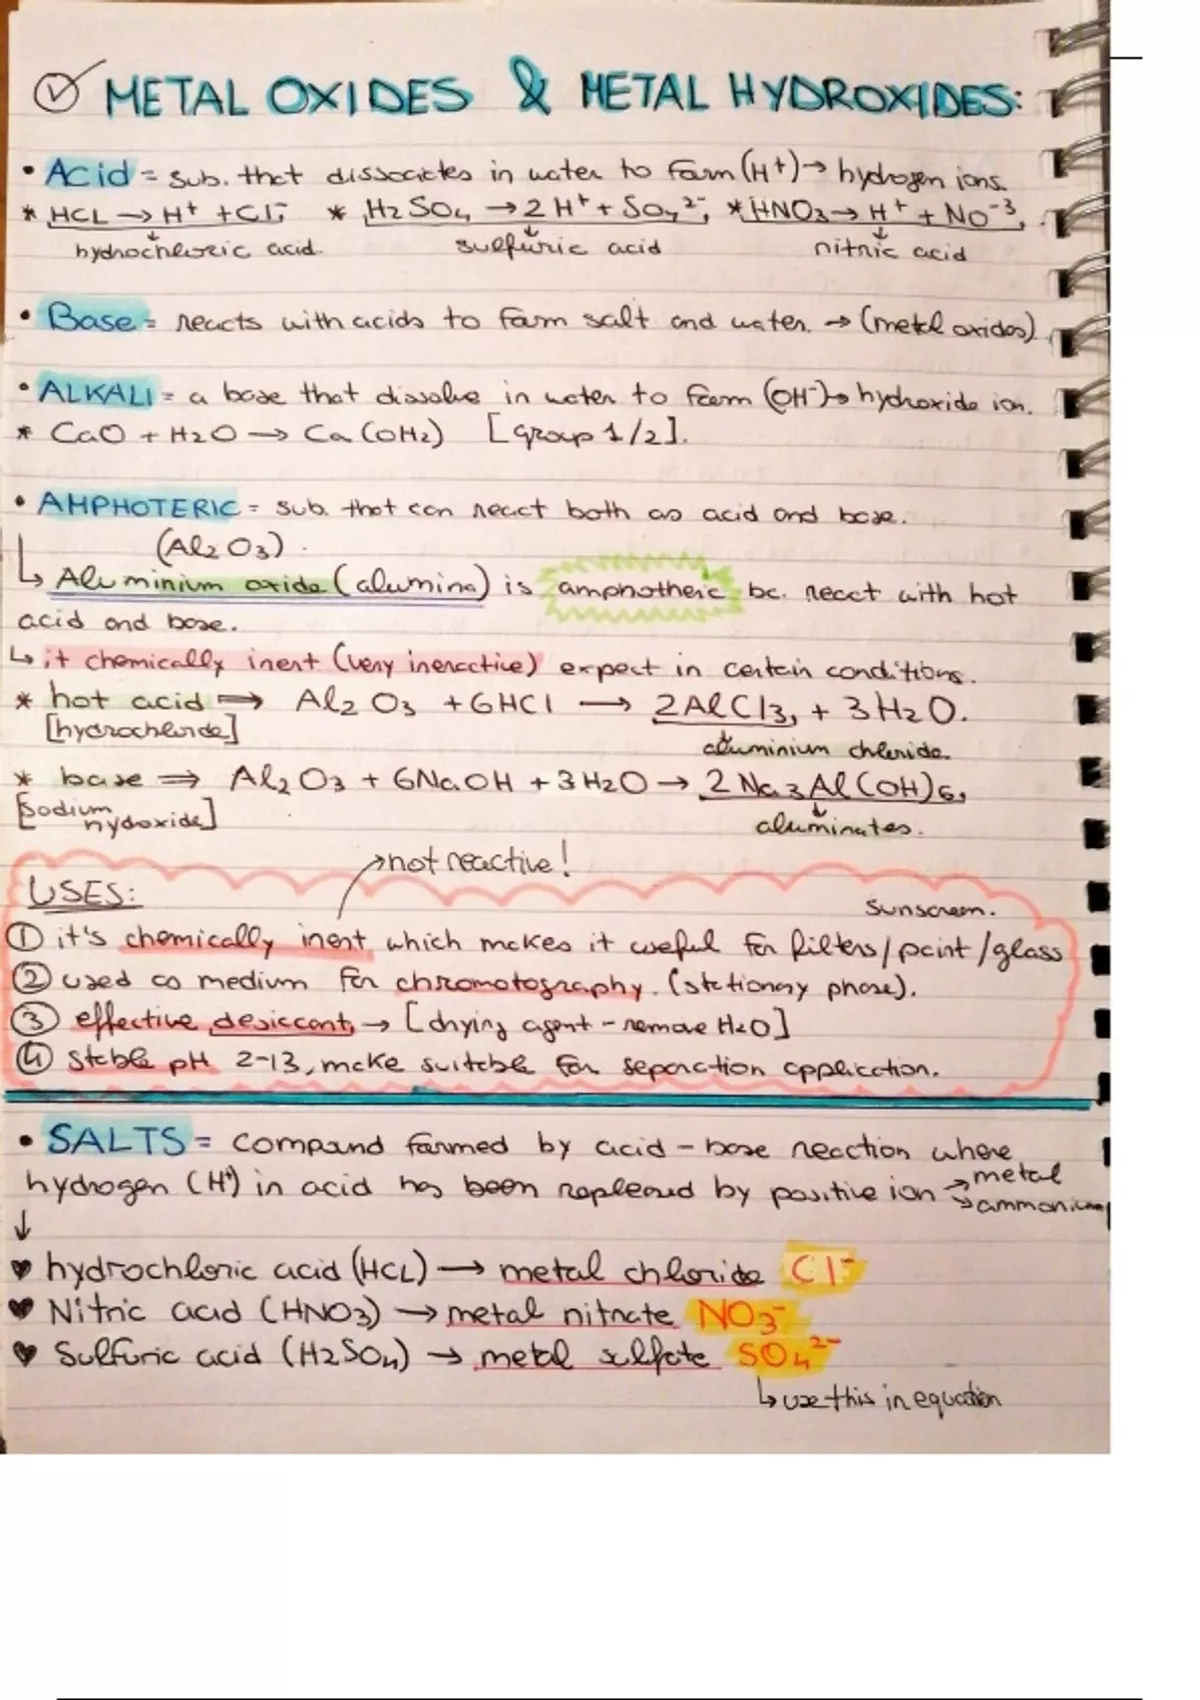 METAL OXIDES & METAL HYDROXIDES:
• Acid = sub. that dissociates in water to form (H+) → hydrogen ions.
* HCL → H+ + Cl-, * H2SO4 → 2H+ + SO4 2-, * HNO3 → H+ + NO-3,
hydrochloric acid. sulfuric acid nitric acid
• Base = reacts with acids to form salt and water. → (metal oxides)
• ALKALI = a base that dissolve in water to form (OH-) → hydroxide ion.
* CaO + H2O → Ca(OH2) [group 1/2].
• AMPHOTERIC = sub. that can react both as acid and base.
(Al2O3).
↳ Aluminium oxide (alumina) is amphotheric bc. react with hot
acid and base.
↳ it chemically inert (very inreactive) expect in certain conditions.
* hot acid ⇒ Al2O3 + 6HCl → 2AlCl3, + 3H2O.
[hydrochloride] aluminium chloride.
* base ⇒ Al2O3 + 6NaOH + 3H2O → 2Na3Al(OH)6,
[sodium hydoxide] aluminates.
→ not reactive!
USES: sunscreen.
① it's chemically inert, which makes it useful for filters/paint/glass
② used as medium for chromotography. (stationary phase).
③ effective desiccant, → [drying agent - remove H2O]
④ stable pH 2-13, make suitable for separation application.
• SALTS = compound formed by acid-base reaction where
hydrogen (H+) in acid has been replaced by positive ion → metal
→ ammonium
↓
♥ hydrochloric acid (HCL) → metal chloride Cl-
♥ Nitric acid (HNO3) → metal nitrate NO3-
♥ Sulfuric acid (H2SO4) → metal sulfate SO4 2-
↳ use this in equation